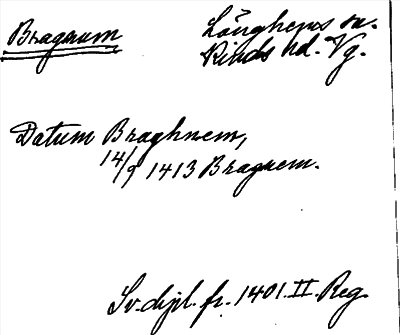 Bragnum
Långhems sn.
Kinds hd. Vg.
Datum Braghnem,
14/9 1413 Bragnem.
Sv. dipl. fr. 1401. II. Reg.